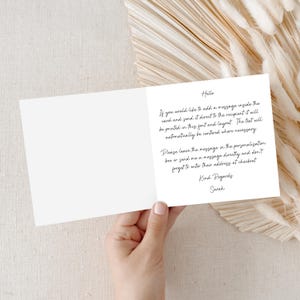 Hello
If you would like to add a message inside the
card and send it direct to the recipient it will
be printed in this font and layout. The text will
automatically be centered where necessary.
Please leave the message in the personalisation
box or send me a message directly and don't
forget to enter their address at checkout
Kind Regards
Sarah